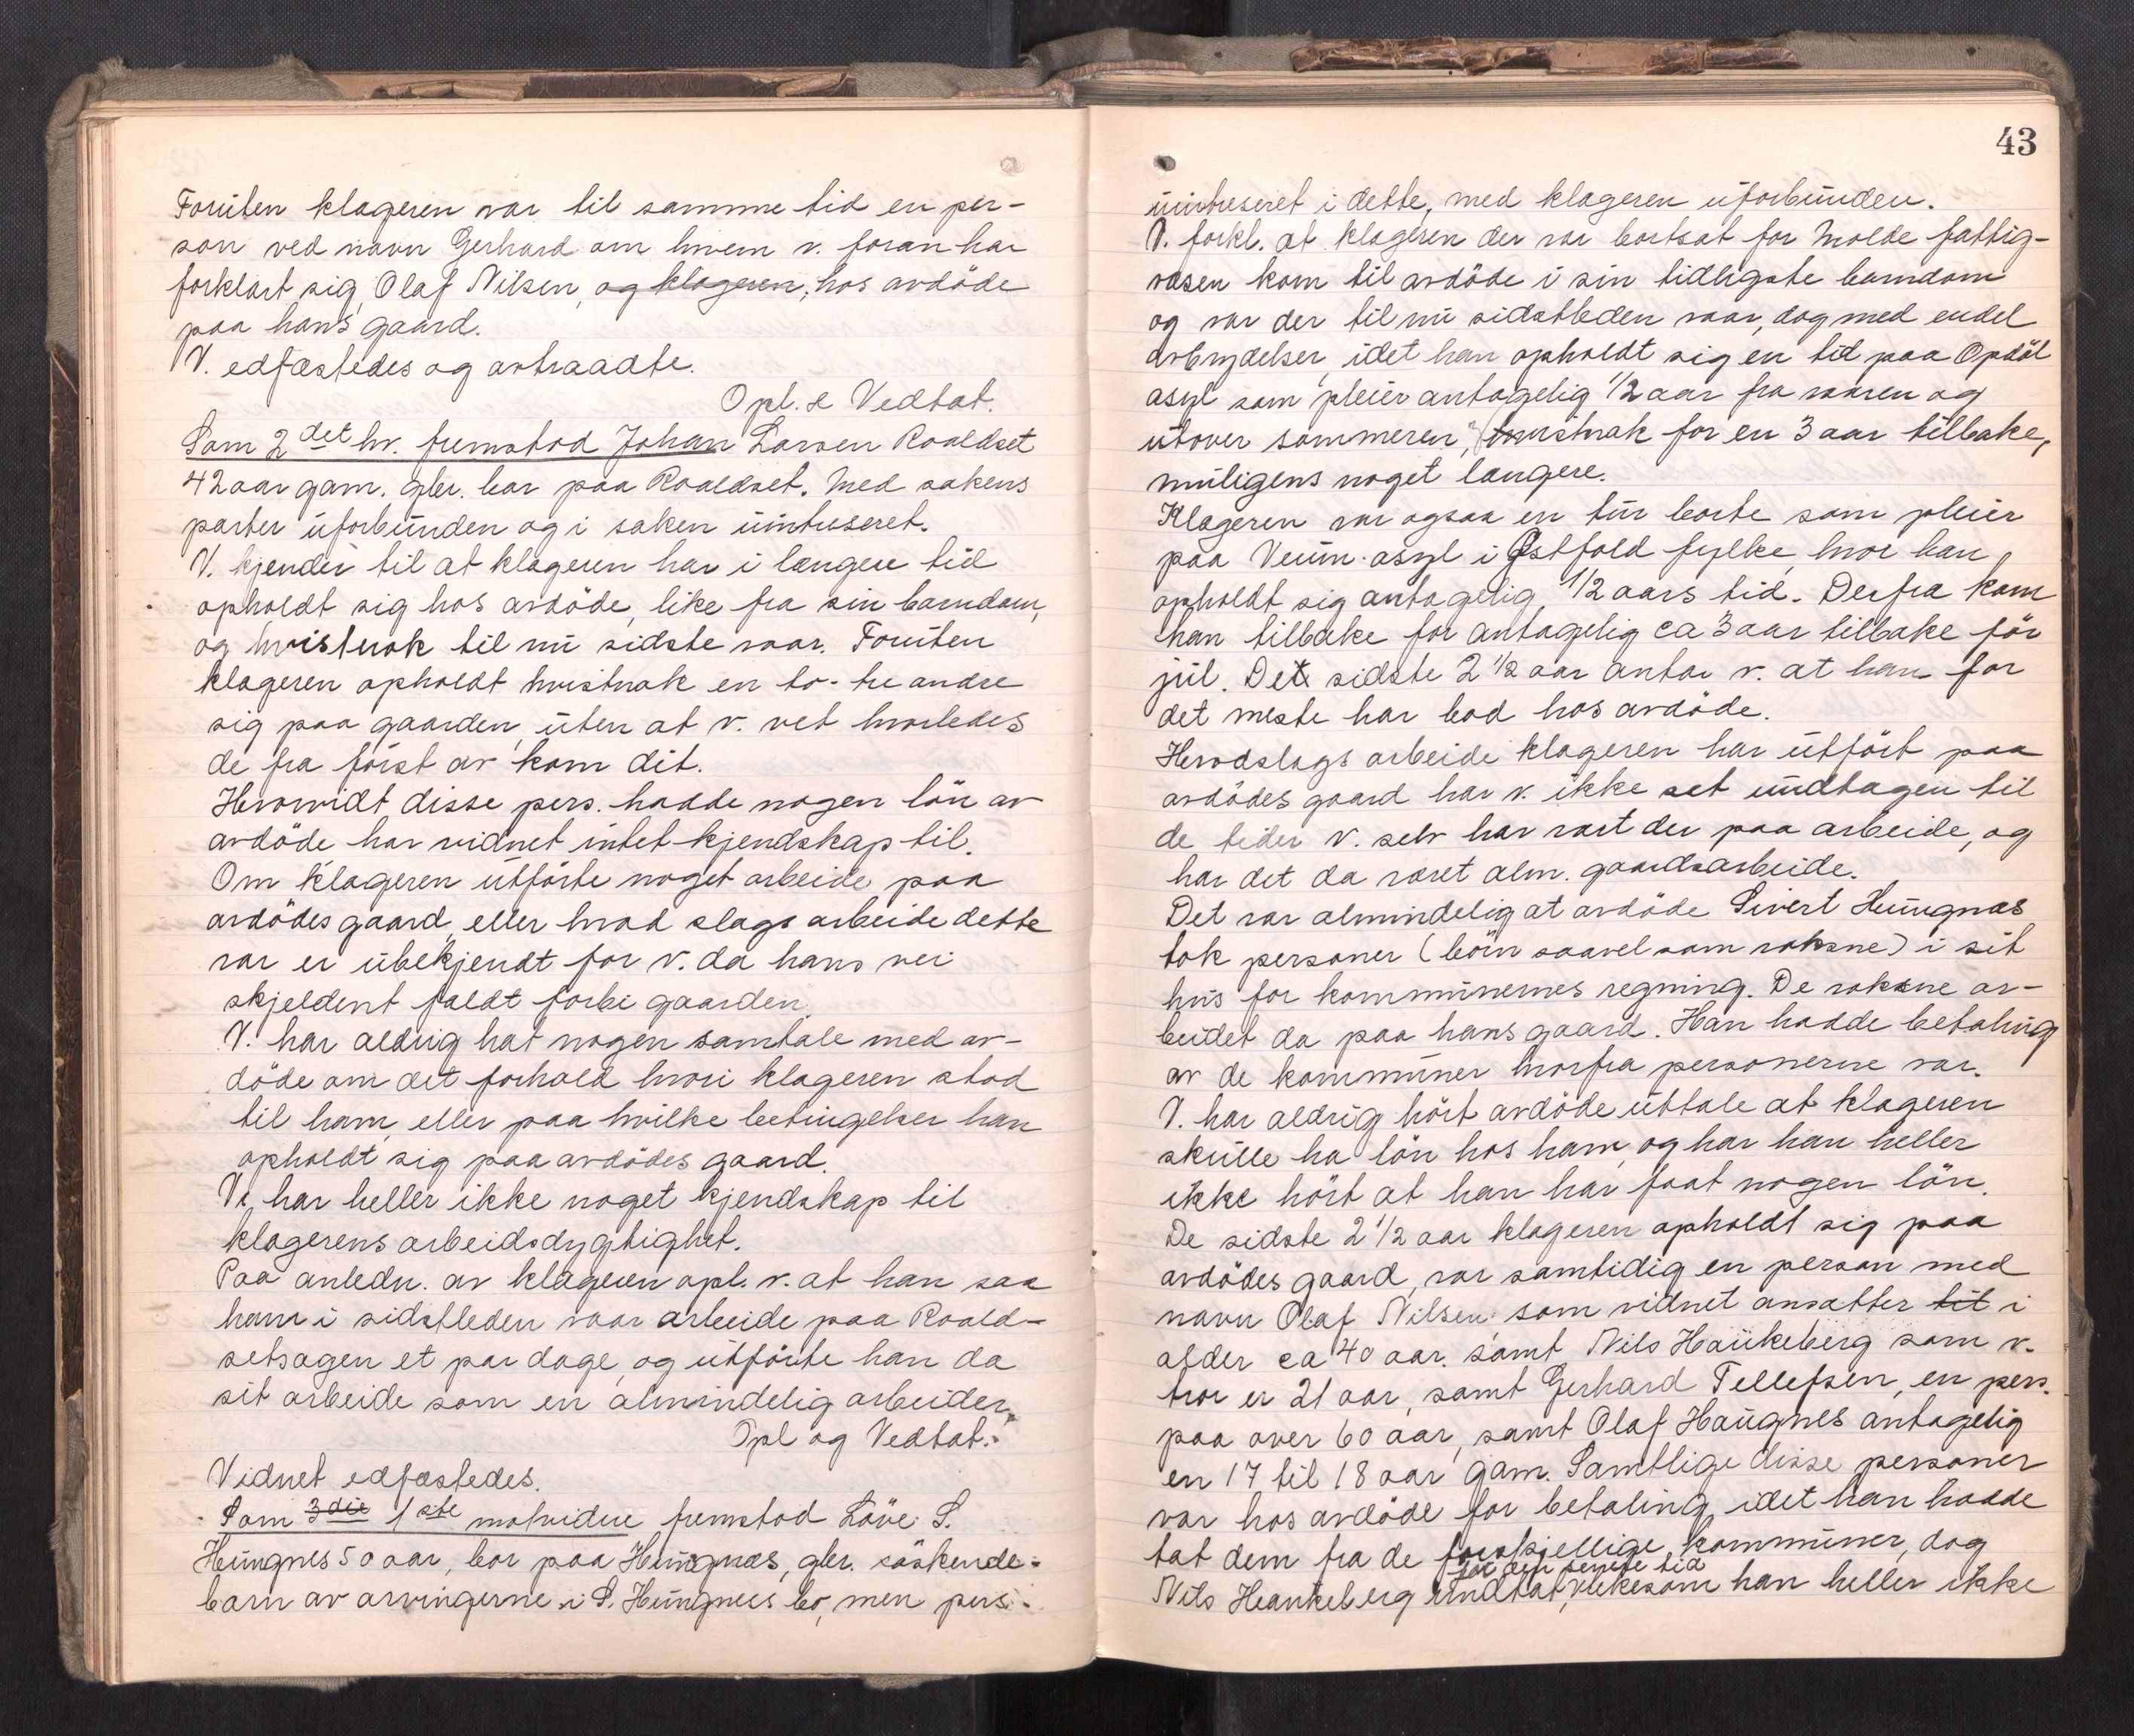 Foruten klageren var til samme tid en per-
son ved navn Gerhard om hvem v. foran har
forklart sig, Olaf Nilsen, og klageren, hos avdöde
paa hans gaard.
V. edfæstedes og avtraadte.
Opl. & Vedtat.
Som 2det hv. fremstod Johan Larsen Roaldset
42 aar gam. gbr. bor paa Roaldset. Med sakens
parter uforbunden og i saken uintreseret.
V. kjender til at klageren har i længere tid
opholdt sig hos avdöde, like fra sin barndom,
og hvistnok til nu sidste vaar. Foruten
klageren opholdt hvistnok en to-tre andre
sig paa gaarden, uten at v. vet hvorledes
de fra först av kom dit.
Hvorvidt disse pers. hadde nogen lön av
avdöde har vidnet intet kjendskap til.
Om klageren utförte noget arbeide paa
avdödes gaard, eller hvad slags arbeide dette
var er ubekjendt for v. da hans vei
skjeldent faldt forbi gaarden.
V. har aldrig hat nogen samtale med av-
döde om det forhold hvori klageren stod
til ham, eller paa hvilke betingelser han
opholdt sig paa avdödes gaard.
V. har heller ikke noget kjendskap til
klagerens arbeidsdygtighet.
Paa anledn. av klageren opl. v. at han saa
ham i sidstleden vaar arbeide paa Roald-
setsagen et par dage, og utförte han da
sit arbeide som en almindelig arbeider.
Opl og Vedtat.
Vidnet edfæstedes.
Som 3die 1ste motvidne fremstod Löve S.
Hungnes 50 aar, bor paa Hungnæs, gbr. söskende-
barn av arvingerne i S. Hungnes bo, men pers.
43
uintreseret i dette, med klageren uforbunden.
V. forkl. at klageren der var bortsat for Molde fattig-
væsen kom til avdöde i sin tidligste barndom
og var der til nu sidstleden vaar, dog med endel
avbrydelser, idet han opholdt sig en tid paa Opdöl
asyl som pleier antagelig 1/2 aar fra vaaren og
utover sommeren, hvistnok for en 3 aar tilbake,
muligens noget længere.
Klageren var ogsaa en tur borte som pleier
paa Veum asyl i Østfold fylke, hvor han
opholdt sig antagelig 1/2 aars tid. Derfra kom
han tilbake for antagelig ca 3 aar tilbake för
jul. De sidste 2 1/2 aar antar v. at han for
det meste har bod hos avdöde.
Hvodslags arbeide klageren har utfört paa
avdödes gaard har v. ikke set undtagen til
de tider v. selv har vært der paa arbeide, og
har det da været alm. gaardsarbeide.
Det var almindelig at avdöde Sivert Hungnæs
tok personer (börn saavel som voksne) i sit
hus for kommunernes regning. De voksne ar-
beidet da paa hans gaard. Han hadde betaling
av de kommuner hvorfra personerne var.
V. har aldrig hört avdöde uttale at klageren
skulle ha lön hos ham, og har han heller
ikke hört at han har faat nogen lön.
De sidste 2 1/2 aar klageren opholdt sig paa
avdödes gaard, var samtidig en person med
navn Olaf Nilsen, som vidnet ansætter til i
alder ca 40 aar. samt Nils Haukeberg som v.
tror er 21 aar, samt Gerhard Tellefsen, en pers.
paa over 60 aar, samt Olaf Haugnes antagelig
en 17 til 18 aar gam. Samtlige disse personer
var hos avdöde for betaling, idet han hadde
tat dem fra de forskjellige kommuner, dog
for den senere tid
Nils Haukeberg undtat, likesom han heller ikke